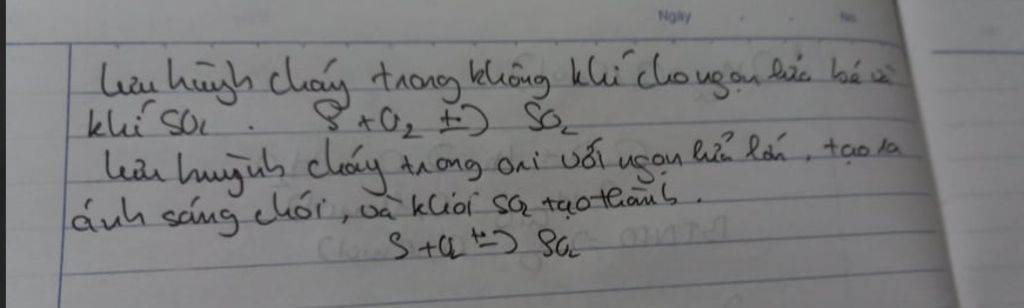 Ngày No
lưu huỳnh cháy trong không khí cho ngọn lửa bé và
khí SO2. S + O2 t°→ SO2
lưu huỳnh cháy trong oxi với ngọn lửa lớn, tạo ra
ánh sáng chói, và khói SO2 tạo thành.
S + O2 t°→ SO2